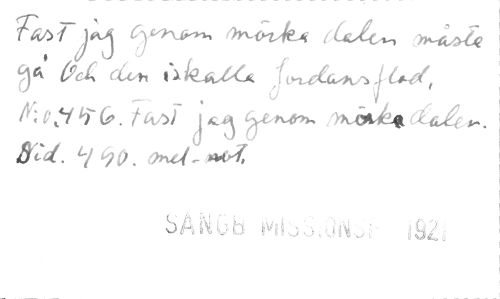 Fast jag genom mörka dalen måste
gå Och den iskalla Jordansflod,
N:o. 456. Fast jag genom mörka dalen.
Sid. 490. mel-not.
SANGB MISSIONSF 1921